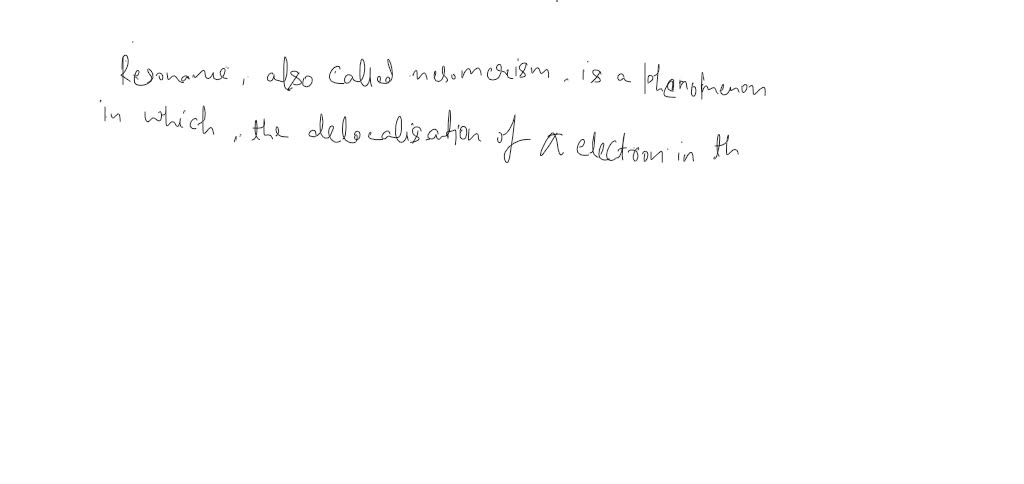 Resonance, also called mesomerism. is a phenomenon
in which, the delocalisation of π electron in th